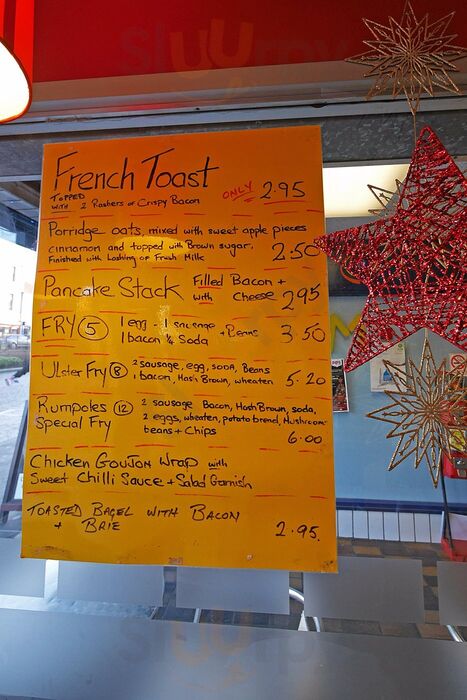 French Toast
TOPPED
WITH 2 Rashers of Crispy Bacon ONLY 2.95
Porridge oats, mixed with sweet apple pieces
cinnamon and topped with Brown sugar.
Finished with Lashing of Fresh Milk 2.50
Pancake Stack Filled Bacon +
with Cheese 2.95
FRY (5) 1 egg - 1 sausage + Beans
1 bacon & Soda 3.50
Ulster Fry (8) 2 sausage, egg, SODA, Beans
1 bacon, Hash Brown, wheaten 5.20
Rumpoles (12) 2 sausage Bacon, Hash Brown, soda,
Special Fry 2 eggs, wheaten, potato bread, Mushroom
beans + Chips
6.00
Chicken Goujon Wrap with
Sweet Chilli Sauce + Salad Garnish
TOASTED BAGEL WITH BACON
+ BRIE 2.95.